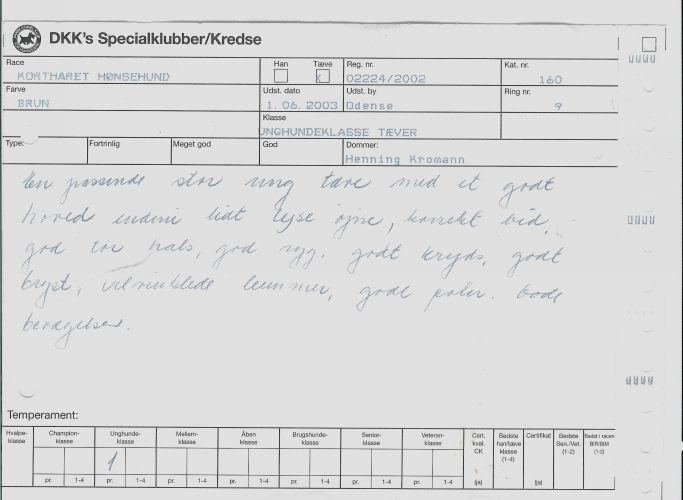 DKK's Specialklubber/Kredse
Race Han Tæve Reg. nr. Kat. nr.
KORTHÅRET HØNSEHUND X 02224/2002 160
Farve Udst. dato Udst. by Ring nr.
BRUN 1. 06. 2003 Odense 9
Klasse
UNGHUNDEKLASSE TÆVER
Type: Fortrinlig Meget god God Dommer:
Henning Kromann
En passende stor ung tæve med et godt
hoved endnu lidt lyse øjne, korrekt bid,
god tør hals, god ryg, godt kryds, godt
bryst, velvinklede lemmer, gode poter. Gode
bevægelser.
Temperament:
Hvalpeklasse Championklasse Unghundeklasse Mellemklasse Åben klasse Brugshundeklasse Seniorklasse Veteranklasse Cert. kval. CK Bedste han/tæve klasse (1-4) Certifikat Bedste Sen./Vet. (1-2) Bedst i racen BIR/BIM (1-2)
1
pr. 1-4 pr. 1-4 pr. 1-4 pr. 1-4 pr. 1-4 pr. 1-4 pr. 1-4 (ja) (ja)